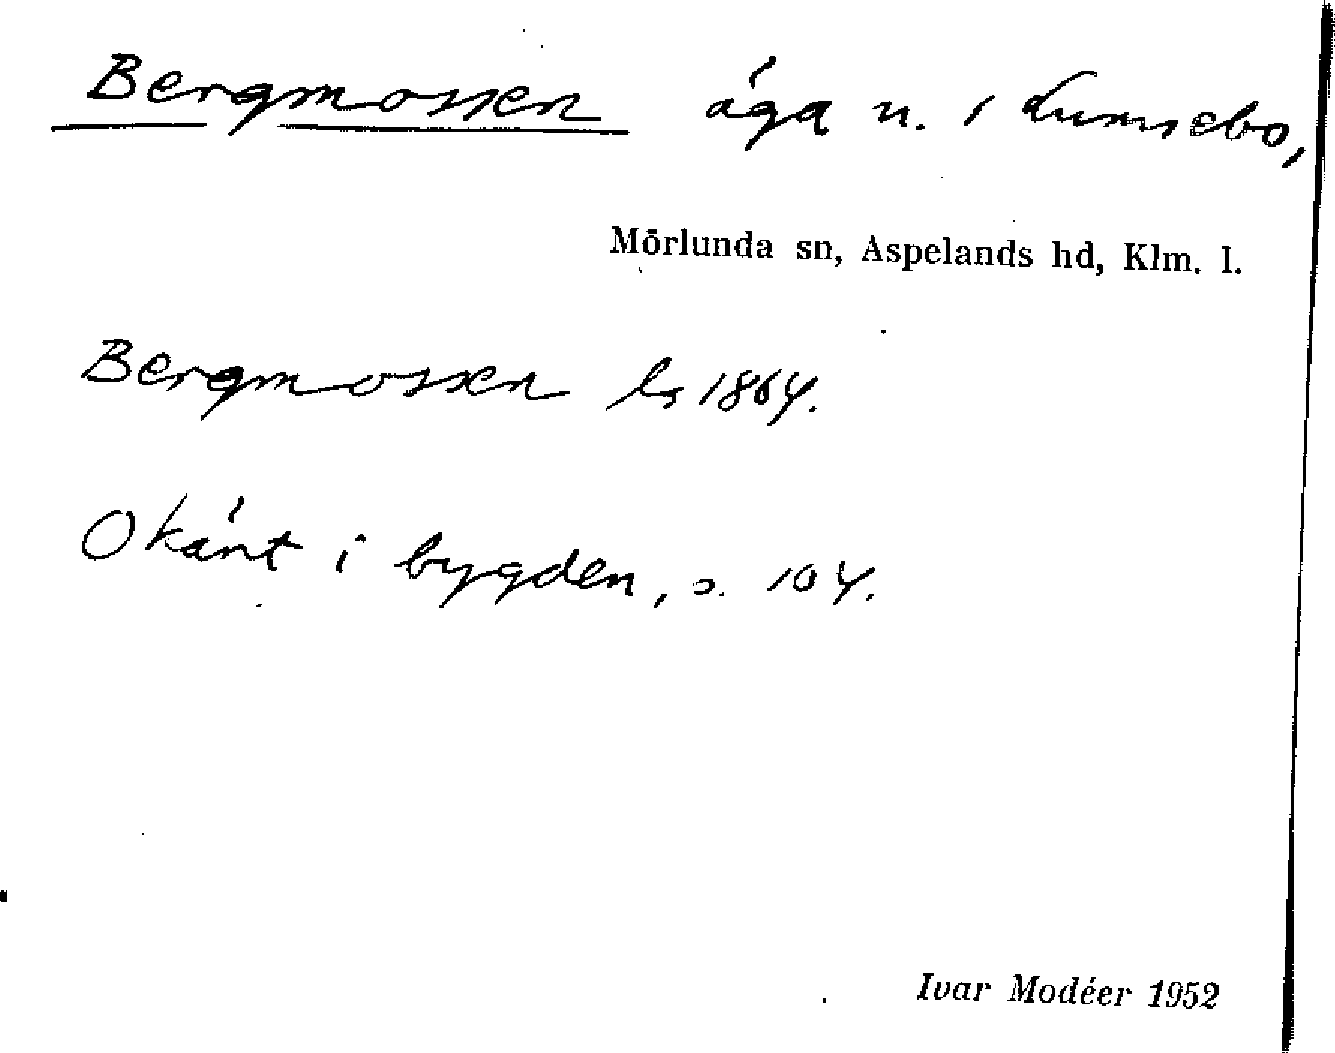 Bergmossen äga n. i Lumsebo,
Mörlunda sn, Aspelands hd, Klm. l.
Bergmossen ls 1864.
Okänt i bygden, s. 104.
Ivar Modéer 1952